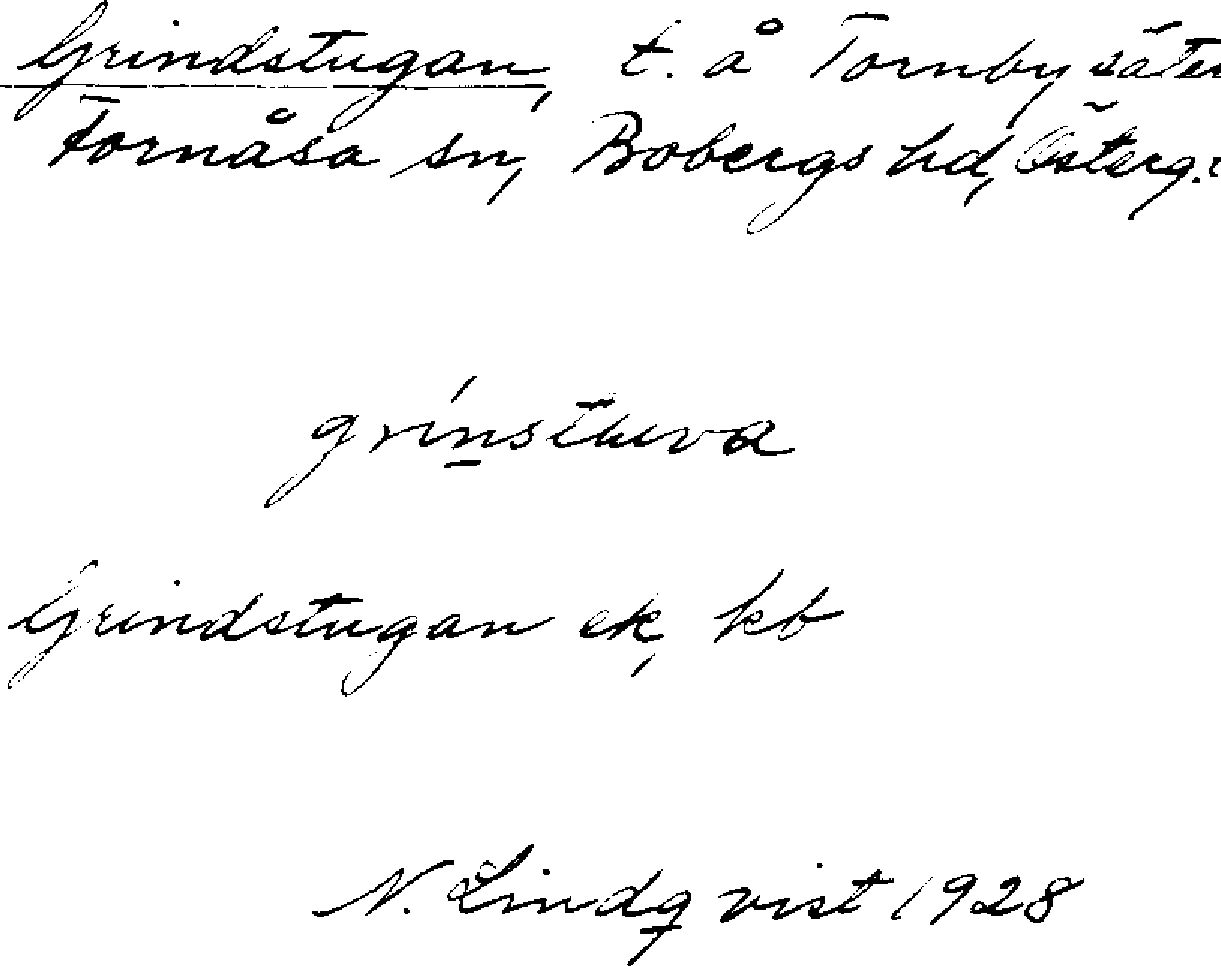 Grindstugan, t. å Tornby säter
Fornåsa sn, Bobergs hd, Österg.
grínstuva
Grindstugan ek, kb
N. Lindqvist 1928